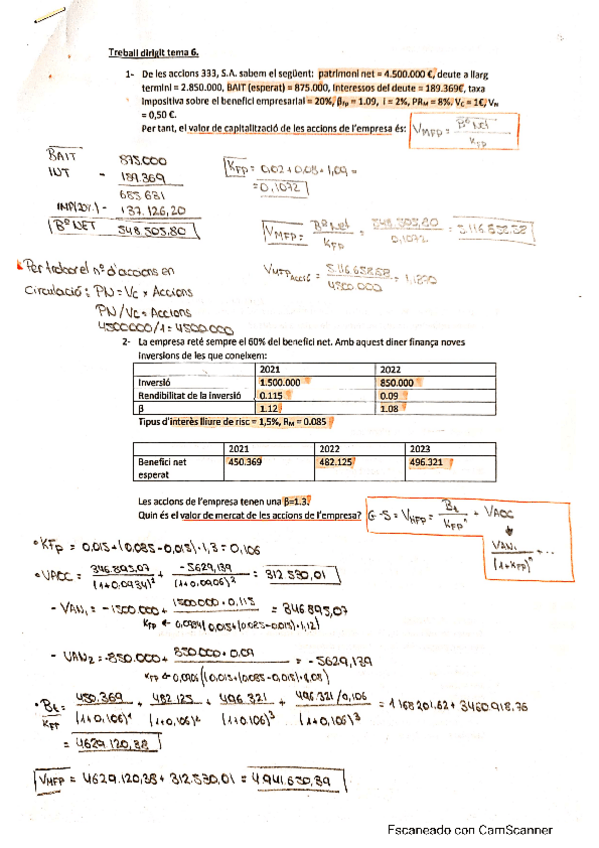 Treball dirigit tema 6.
1- De les accions 333, S.A. sabem el següent: patrimoni net = 4.500.000 €, deute a llarg
termini = 2.850.000, BAIT (esperat) = 875.000, Interessos del deute = 189.369€, taxa
Impositiva sobre el benefici empresarial = 20%, βfp = 1.09, i = 2%, PRM = 8%. VC = 1€, VN
= 0,50 €.
Per tant, el valor de capitalització de les accions de l'empresa és: VMFP = Bº Net / KFP
BAIT 875.000
INT - 189.369
685 631
IMP(20%) - 137.126,20
Bº NET 548.505.80
KFP = 0,02+0,08·1,09 =
= 0,1072
VMFP = Bº Net / KFP = 548.505,80 / 0,1072 = 5.116.658.58
Per trobar el nº d'accions en
Circulació: PN = Vc x Accions
PN/Vc = Accions
4500000/1 = 4500.000
VMFP ACCIÓ = 5.116.658.58 / 4500.000 = 1,1370
2- La empresa reté sempre el 60% del benefici net. Amb aquest diner finança noves
inversions de les que coneixem:
2021 2022
Inversió 1.500.000 850.000
Rendibilitat de la inversió 0.115 0.09
β 1.12 1.08
Tipus d'interès lliure de risc = 1,5%, RM = 0.085
2021 2022 2023
Benefici net esperat 450.369 482.125 496.321
Les accions de l'empresa tenen una β=1.3.
Quin és el valor de mercat de les accions de l'empresa?
G-S = VMFP = Bt / KFPⁿ + VAOC
VAN1 / (1+KFP)ⁿ + ...
• KFP = 0.015+(0.085-0,015)·1,3 = 0,106
• VAOC = 346.895,07 / (1+0,0934)¹ + -5629,139 / (1+0,0906)² = 312 530,01
- VAN1 = -1500.000 + 1500000·0,115 / KFP = 346 895,07
KFP → 0,0934 (0,015+(0,085-0,015)·1,12)
- VAN2 = -850.000 + 850000·0.09 = -5629,139
KFP → 0,0906 (0,015+(0,085-0,015)·1,08)
• Bt / KFP = 450.369 / (1+0,106)¹ + 482.125 / (1+0,106)² + 496 321 / (1+0.106)³ + 496.321/0,106 / (1+0,106)³ = 1168201.62 + 3460918.76
= 4629.120,38
VMFP = 4629.120,38 + 312.530,01 = 4.941.650,39
Escaneado con CamScanner